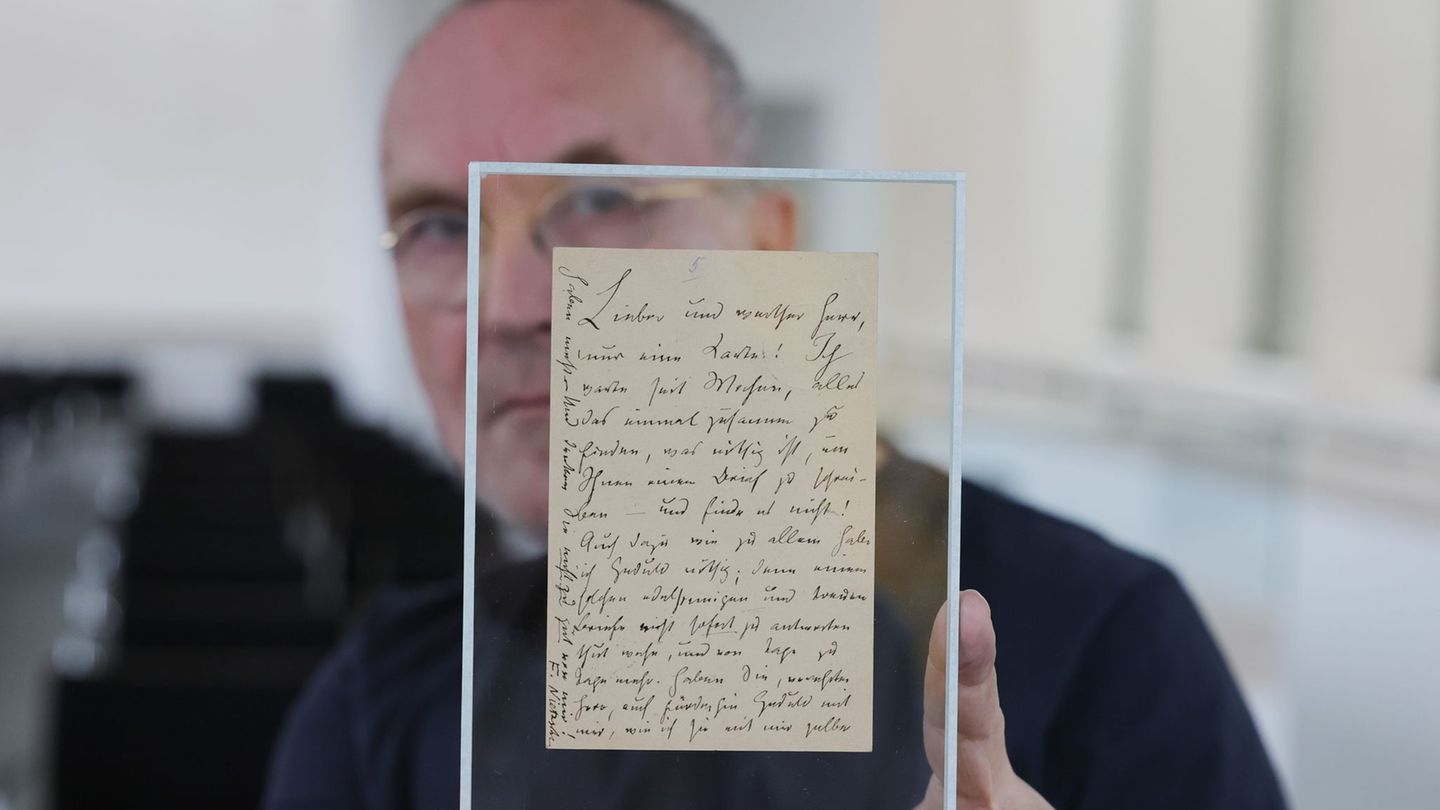 5
Lieber und werther Herr,
nur eine Karte! Ich
warte seit Wochen, alles
das einmal zusammen zu
finden, was nöthig ist, um
Ihnen einen Brief zu schrei-
ben — und finde es nicht!
Auch dazu wie zu allem habe
ich Geduld nöthig; denn einem
solchen edelsinnigen und treuen
Briefe nicht sofort zu antworten
thut wehe, und von Tage zu
Tage mehr. Haben Sie, verehrter
Herr, auch fürderhin Geduld mit
mir, wie ich sie mit mir selber
haben muß. Und denken Sie nicht zu gut von mir!
F. Nietzsche.